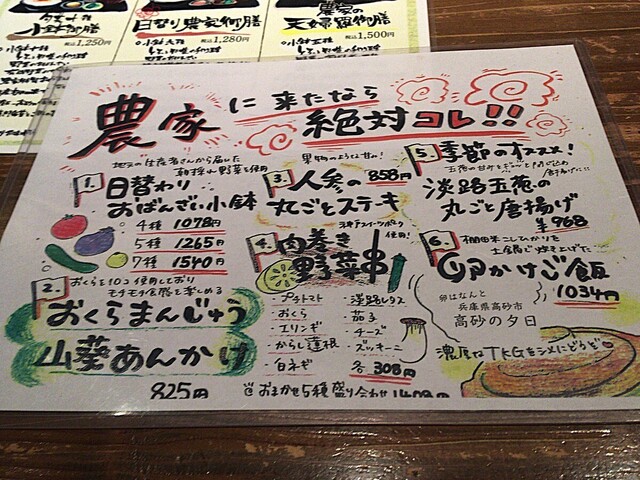 日替り農家御膳
農家の
天婦羅御膳
税込1,250円
税込1,280円
税込1,500円
農家に来たなら
絶対コレ!!
地元の生産者さんから届いた
朝採れ野菜を使用
1. 日替わり
おばんざい小鉢
4種 1078円
5種 1265円
7種 1540円
2. おくらを10コ使用しており
モチモチ食感を楽しめる
おくらまんじゅう
山葵あんかけ
825円
果物のような甘み!
3. 人参の 858円
丸ごとステーキ
4. 肉巻き
野菜串
使用!
・プチトマト
・おくら
・エリンギ
・からし蓮根
・白ネギ
・淡路レタス
・茄子
・チーズ
・ズッキーニ
各 308円
おまかせ5種盛り合わせ 1408円
5. 季節のオススメ!
淡路玉葱の
丸ごと唐揚げ
¥968
6. 棚田米こしひかりを
土鍋で炊き上げた
卵かけご飯
1034円
卵はなんと
兵庫県高砂市
高砂の夕日
濃厚なTKGをシメにどうぞ